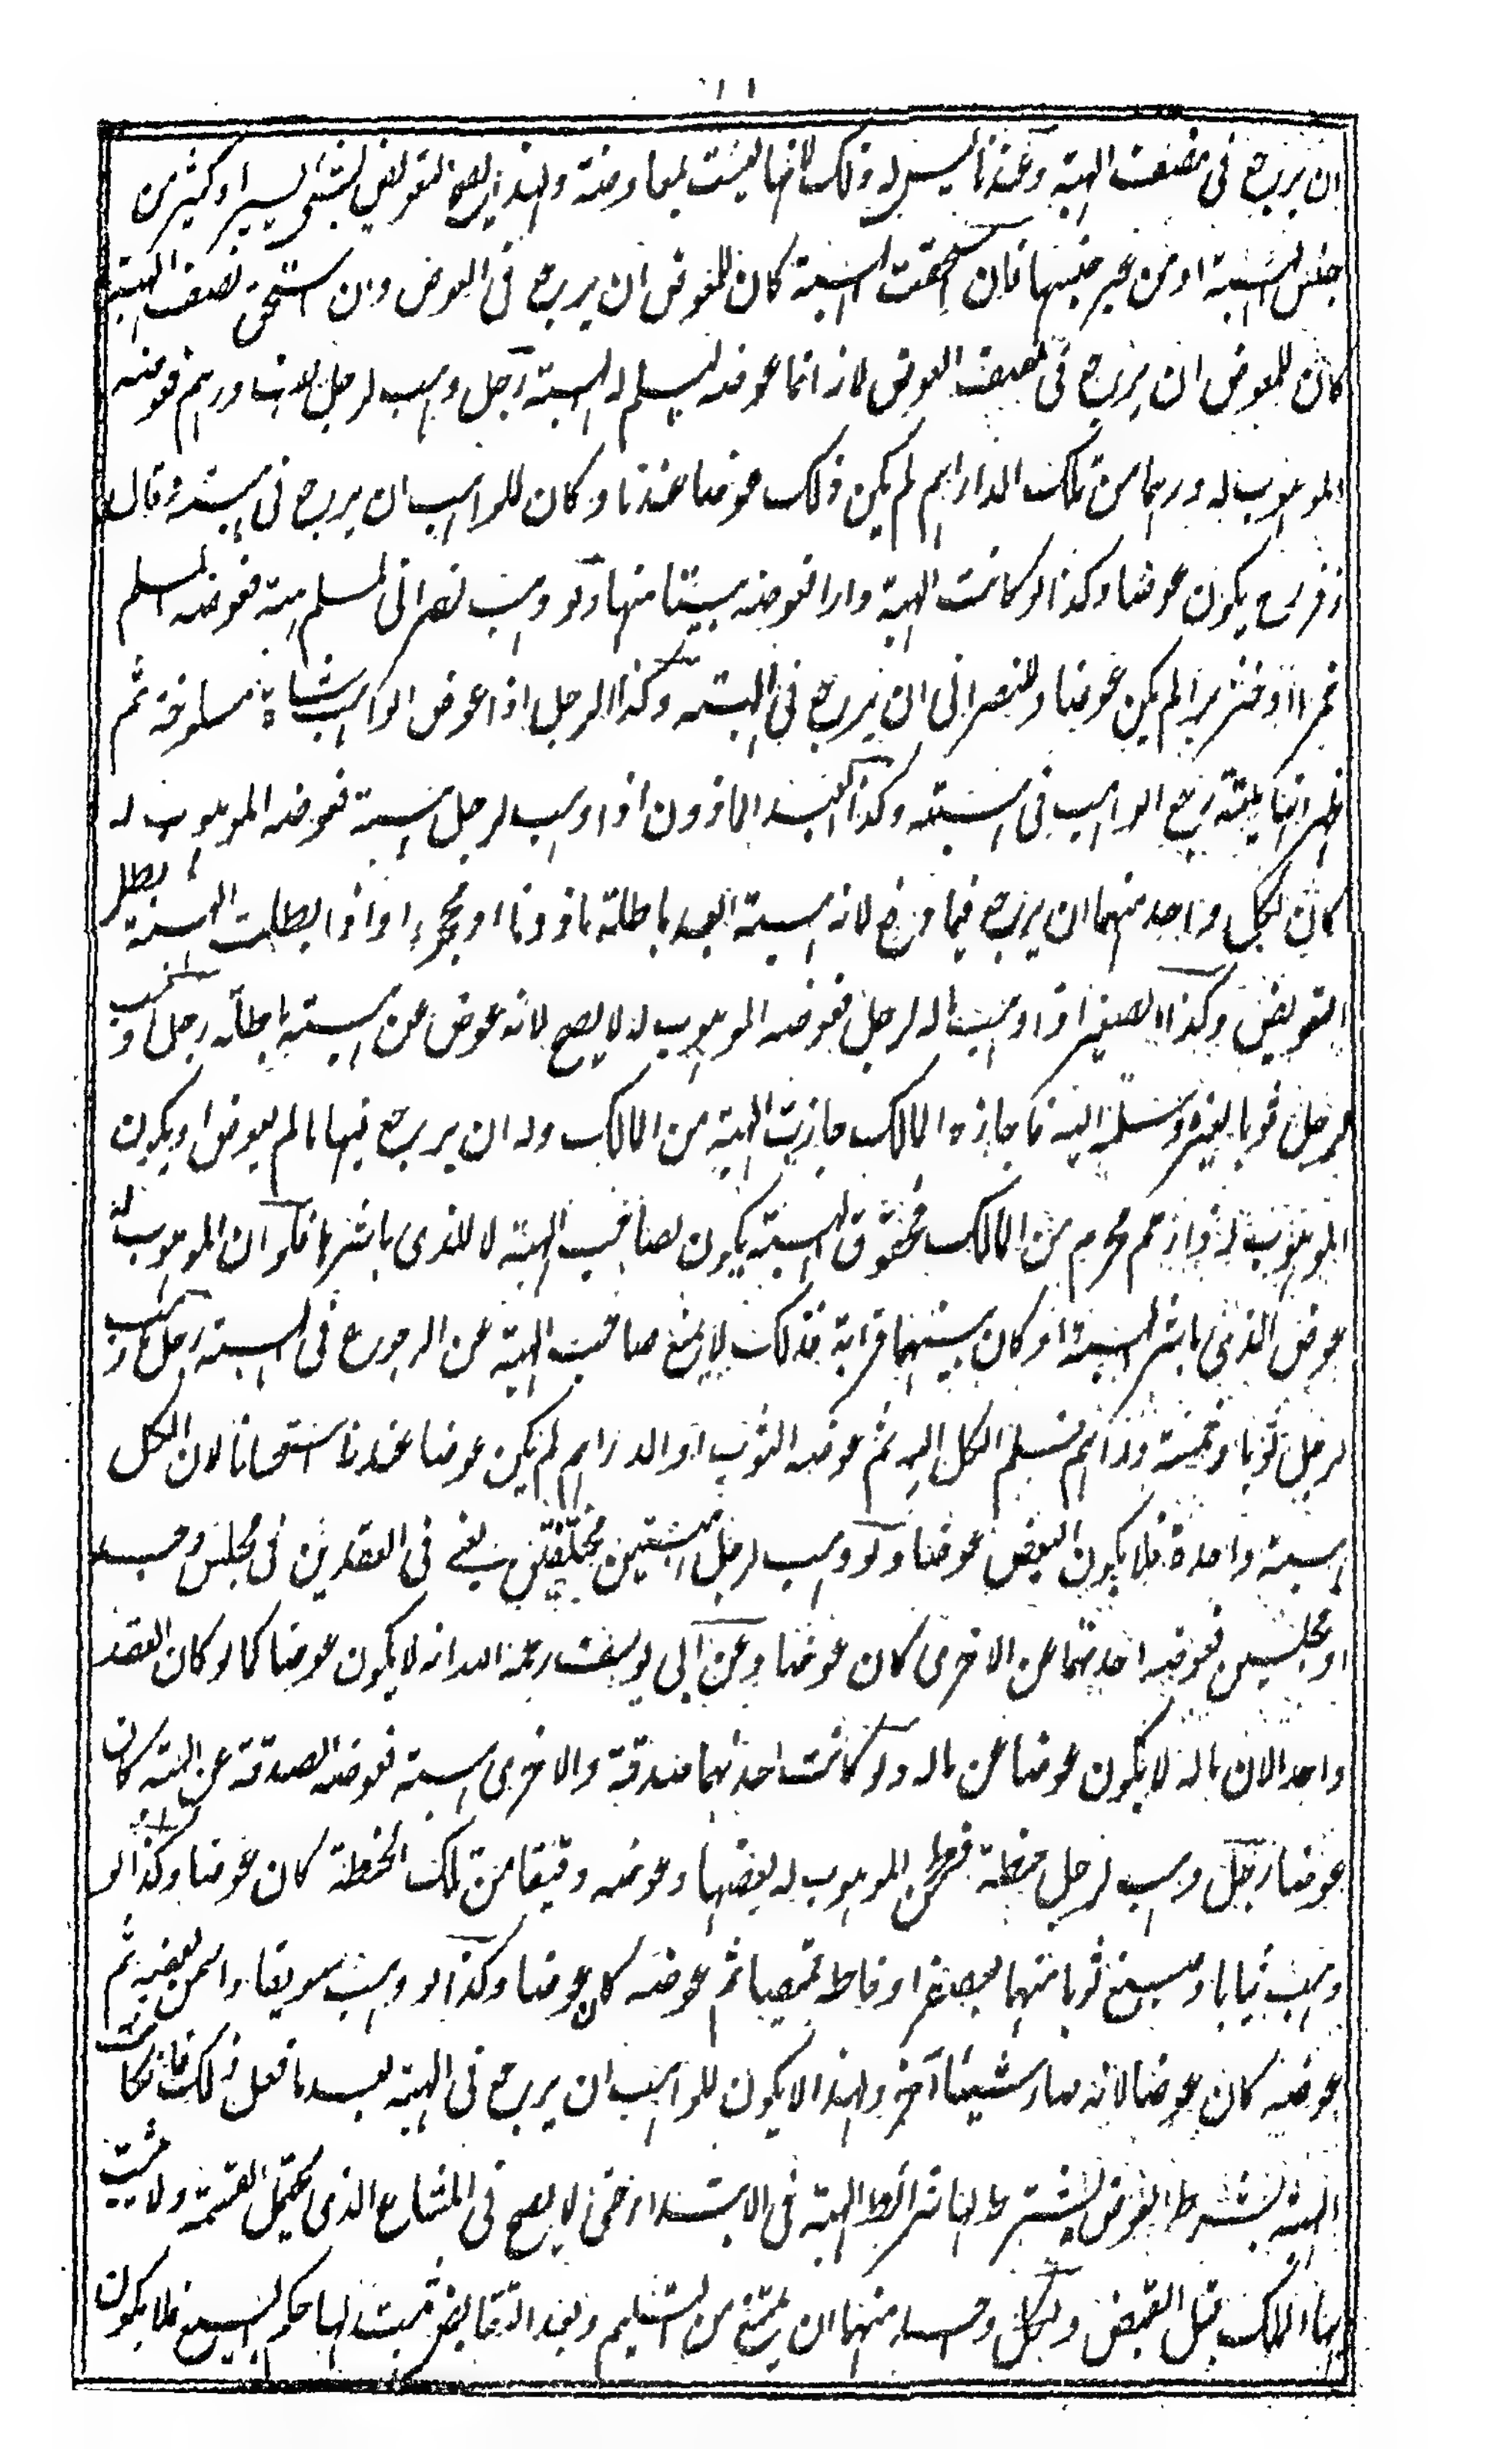 ان يرجع فى نصف الهبة وعندنا ليس له ذلك لانها ليست بمعاوضة ولهذا يصح التعويض بشئ يسير او كثير من
جنس الهبة او من غير جنسها فان استحقت الهبة كان للمعوض ان يرجع فى العوض وان استحق نصف الهبة
كان للمعوض ان يرجع فى نصف العوض لانه انما عوضه ليسلم له الهبة رجل وهب لرجل الف درهم فعوضه
الموهوب له درهما من تلك الدراهم لم يكن ذلك عوضا عندنا وكان للواهب ان يرجع فى هبته وقال
زفر رح يكون عوضا وكذا لو كانت الهبة دارا فعوضه بيتا منها ولو وهب نصرانى لمسلم هبة فعوضه المسلم
خمرا او خنزيرا لم يكن عوضا وللنصرانى ان يرجع فى الهبة وكذا الرجل اذا عوض الواهب شاة مسلوخة ثم
ظهر انها ميتة رجع الواهب فى هبته وكذا العبد الماذون اذا وهب لرجل هبة فعوضه الموهوب له
كان لكل واحد منهما ان يرجع فيما دفع لانه هبة العبد باطلة ماذونا او محجورا واذا بطلت الهبة بطل
التعويض وكذا الصغير اذا وهب ماله لرجل فعوضه الموهوب له لا يصح لانه عوض عن هبة باطلة رجل وهب
لرجل ثوبا لغيره وسلمه اليه فاجازه المالك جازت الهبة من المالك وله ان يرجع فيها ما لم يعوض او يكون
الموهوب له ذا رحم محرم من المالك فحقوق الهبة يكون لصاحب الهبة لا للذى باشرها فلو ان الموهوب له
عوض الذى باشر الهبة او كان بينهما قرابة فذلك لا يمنع صاحب الهبة عن الرجوع فى الهبة رجل وهب
لرجل ثوبا وخمسة دراهم فسلم الكل اليه ثم عوضه الثوب او الدراهم لم يكن عوضا عندنا استحسانا لان الكل
هبة واحدة فلا يكون البعض عوضا ولو وهب لرجل هبتين مختلفتين يعنے فى العقدين فى مجلس واحد
او مجلسين فعوضه احدهما عن الاخرى كان عوضا وعن ابى يوسف رحمه الله انه لا يكون عوضا كما لو كان العقد
واحدا لان ماله لا يكون عوضا عن ماله ولو كانت احدهما صدقة والاخرى هبة فعوضه الصدقة عن الهبة كان
عوضا رجل وهب لرجل حنطة فطحن الموهوب له بعضها وعوضه دقيقا من تلك الحنطة كان عوضا وكذا لو
وهب ثيابا وصبغ ثوبا منها بعصفر او خاطه قميصا ثم عوضه كان عوضا وكذا لو وهب سويقا والس بعضه ثم
عوضه كان عوضا لانه صار شيئا آخر ولهذا لا يكون للواهب ان يرجع فى الهبة بعد ما فعل ذلك فان كانت
الهبة بشرط العوض يشترط لها شرائط الهبة فى الابتداء حتى لا يصح فى المشاع الذى يحتمل القسمة ولا يثبت
بها الملك قبل القبض ولكل واحد منهما ان يمتنع من التسليم وبعد التقابض يثبت لها حكم البيع فلا يكون